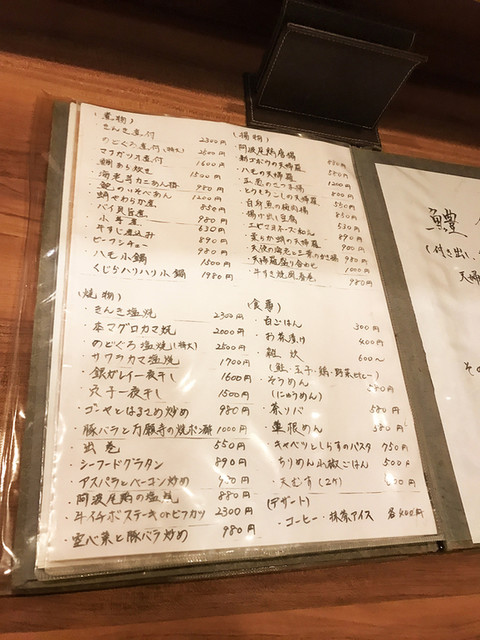 (煮物)
・きんき煮付 2300円
・のどぐろ煮付(特大) 2500円
・マナガツオ煮付 1600円
・鯛あら炊き
・海老芋カニあん掛 1500円
・鱧のいそべあん 980円
・蛸やわらか煮 1200円
・バイ貝旨煮
・小芋煮 980円
・牛すじ煮込み 630円
・ビーフシチュー 890円
・ハモ小鍋 1500円
・くじらハリハリ小鍋 1980円
(揚物)
・阿波尾鶏唐揚 880円
・新さがりの天婦羅 580円
・ハモの天婦羅 1200円
・とうもろこしの天婦羅
・白身魚の梅肉揚 850円
・揚げ出し豆腐 530円
・エビマヨネーズわん 890円
・柔らか蛸の天婦羅 900円
・天婦羅盛り合わせ 1000円
・牛すき焼肉春巻 980円
(焼物)
・きんき塩焼 2300円
・本マグロカマ焼 2000円
・のどぐろ塩焼(特大) 2500円
・サワラカマ塩焼 1900円
・銀ガレイ一夜干し 1600円
・穴子一夜干し 1500円
・ゴーヤとはるさめ炒め 980円
・豚バラと万願寺の焼ポン酢 1000円
・出巻 550円
・シーフードグラタン 890円
・アスパラとベーコン炒め
・阿波尾鶏の塩焼 880円
・牛イチボステーキorビフカツ 2300円
・空心菜と豚バラ炒め 980円
(食事)
・白ごはん 300円
・お茶漬け 400円
・雑炊 600〜
(鮭・玉子・鶏・野菜・ヒレー)
・そうめん 580円
(にゅうめん)
・茶ソバ 580円
・蓮根めん 580円
・キャベツとしらすのパスタ 750円
・ちりめん山椒ごはん 500円
・天むす(2ケ)
(デザート)
・コーヒー・抹茶アイス 各400円
鱧
(付き出し、
天婦
その